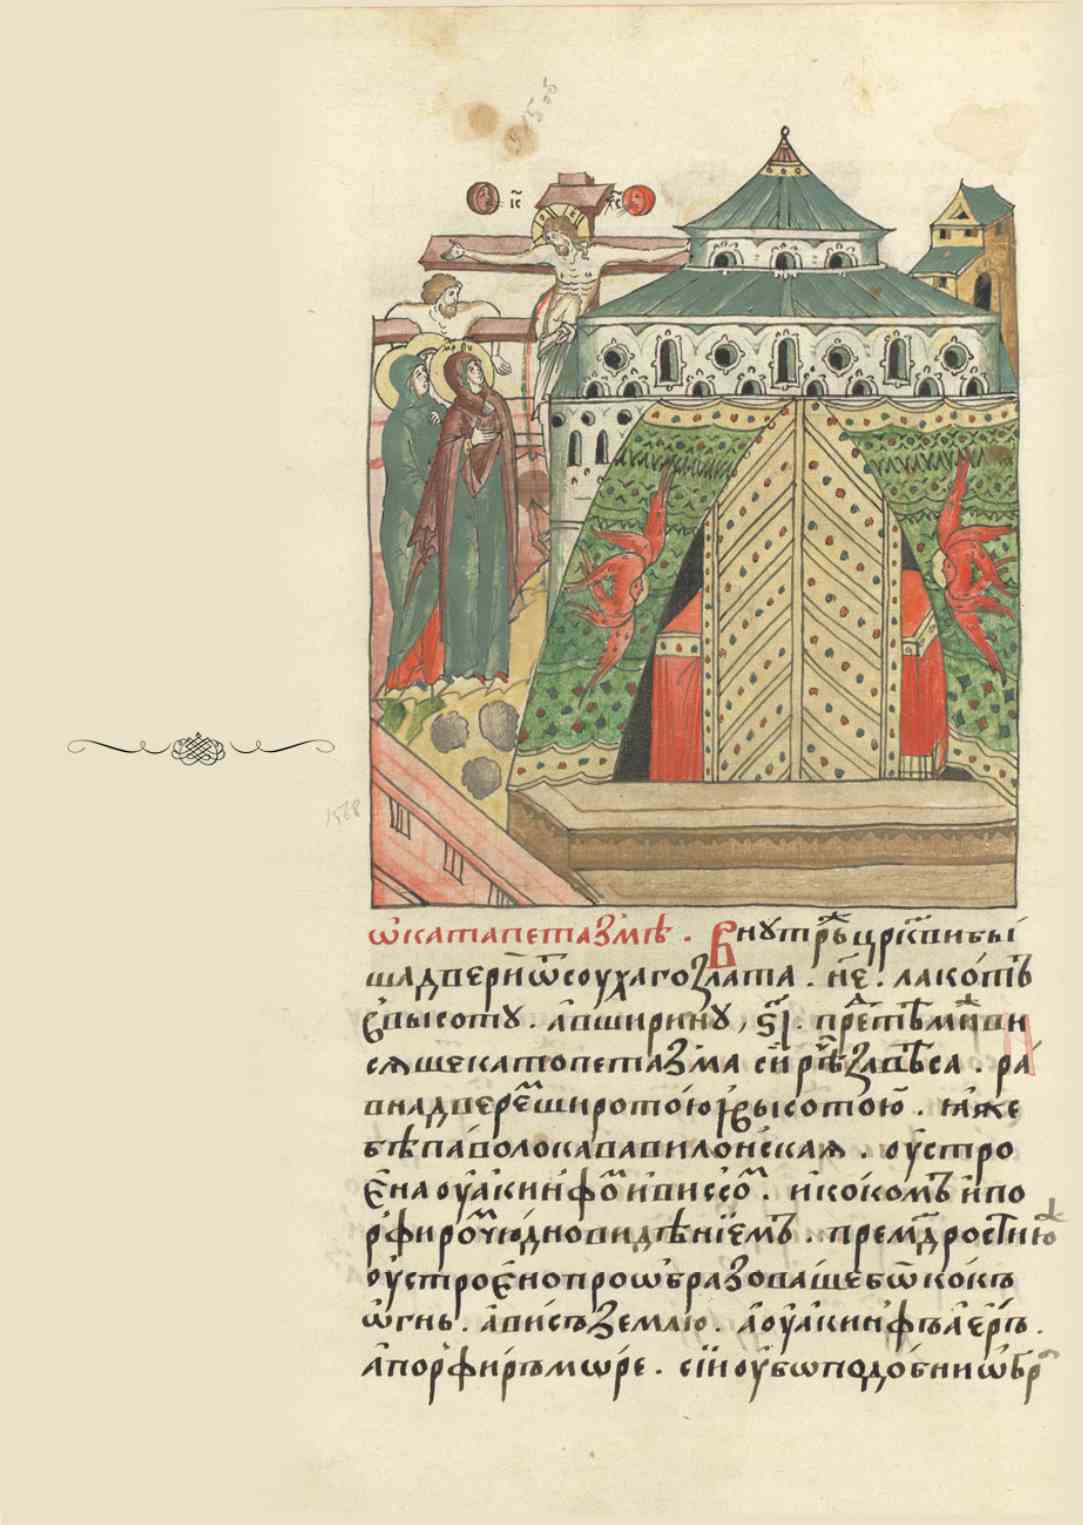 і҃с х҃с
ѡкатапетазмѣ . Внутрьцр҃квибы
шадвериѿсоухагозлата . н҃е . лакотъ
ввысоту . авширину , ѕ҃і . предтѣмиви
сящекатопетазма сирѣчьзавѣса . ра
внадверемширотоюивысотою . яже
бѣпаволокававилонская . оустро
енаоуакинфомивиссом . икокомъипо
рфиромчюдновидѣніемъ . премдростию
оустроенопроѡбразоващебѿкокъ
ѡгнь . ависъземлю . аоуакинфъаеръ .
апорфиръмѡре . сіиоубѡподобниѡбр
1568